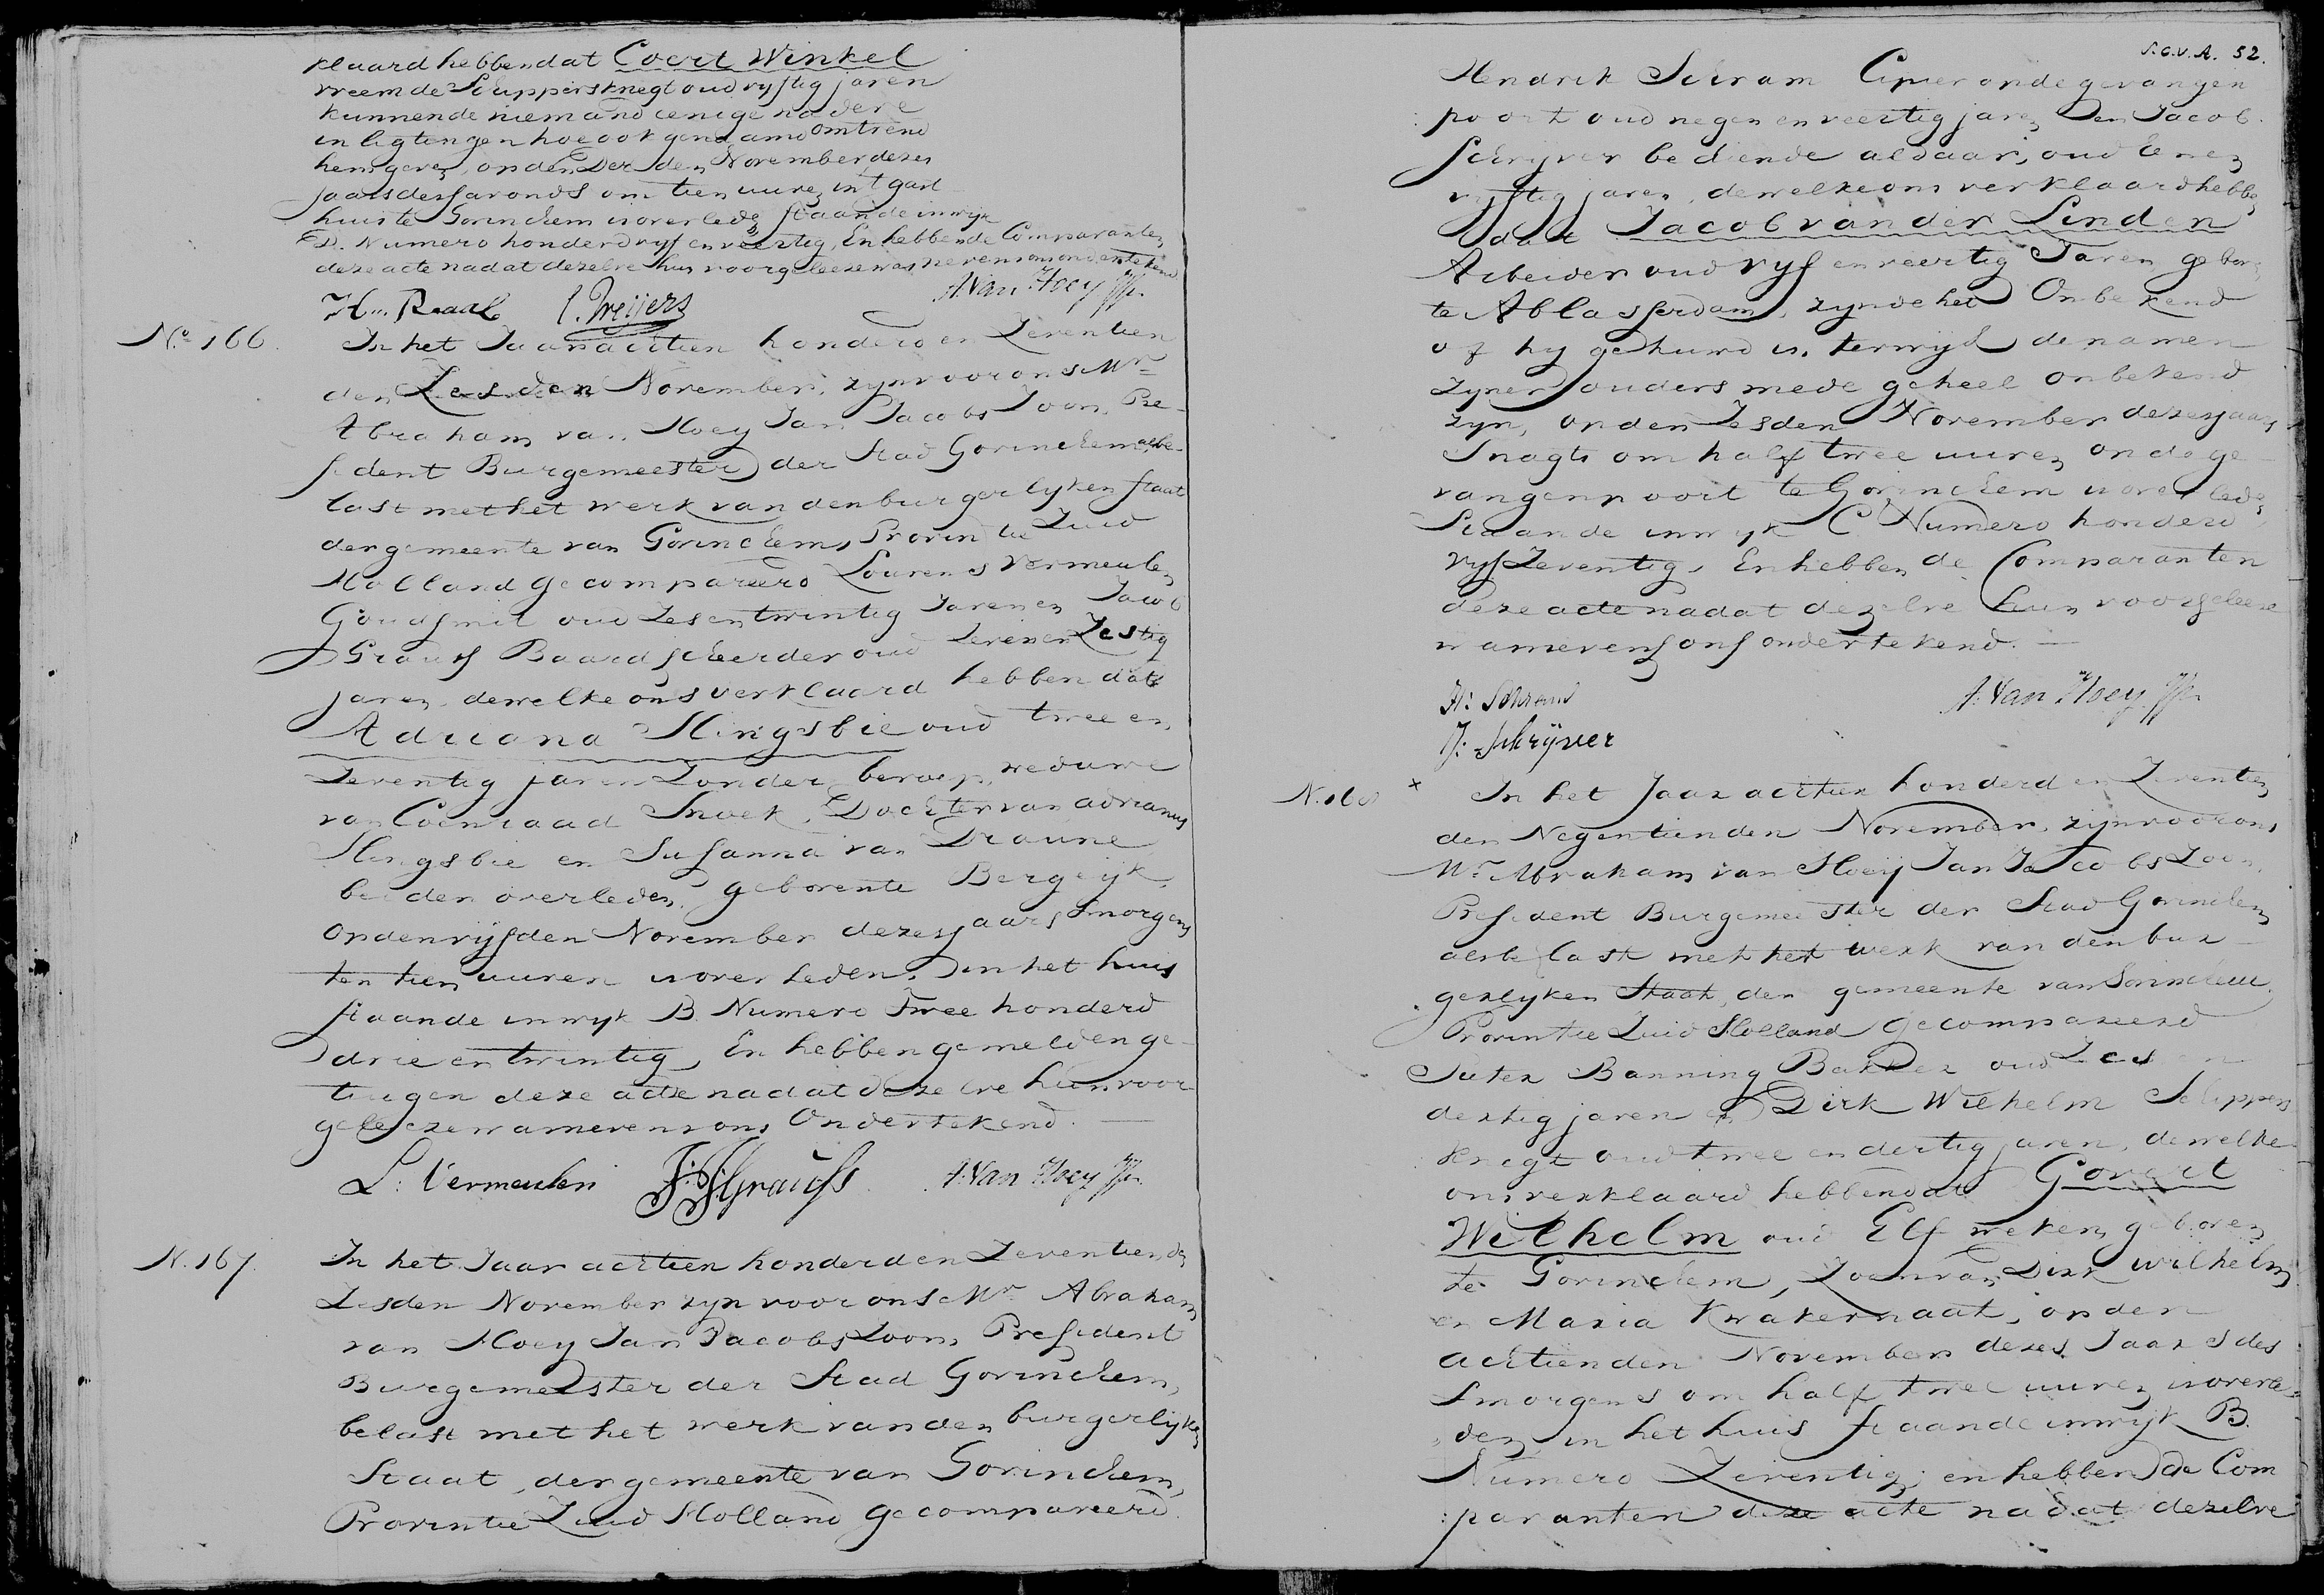 klaard hebben dat Coert Winkel
vreemde Schippersknegt oud vyftig jaren
kunnende niemand eenige nadere
inligtingen hoe ook genaamd omtrend
hem geven, op den derden November dezes
jaars des savonds om tien uuren in 't gast
huis te Gorinchem is overleden staande in wijk
D. Numero honderd vyf en veertig, En hebben de Comparanten
deze acte na dat dezelve hun voorgeleezen was nevens ons ondertekend
H. Raal A. Van Hoey JJz.
No. 166. In het Jaar achtien honderd en Zeventien
den Zesden November, zyn voor ons Mr.
Abraham van Hoey Jan Jacobs Zoon, Pre-
sident Burgemeester der Stad Gorinchem, als be-
last met het werk van den burgerlyken staat
der gemeente van Gorinchem, Provintie Zuid
Holland gecompareerd Lourens Vermeulen
Goudsmit oud Zes en twintig Jaren en Jacob
Grauss Baardscheerder oud Zeven en Zestig
jaren, dewelke ons verklaard hebben dat
Adriana Slingsbie oud twee en
Zeventig jaren Zonder beroep, weduwe
van Coenraad Snoek, Dochter van Adrianus
Slingsbie en Susanna van Draune
beiden overleden, geboren te Bergeijk,
op den vyfden November dezes jaars Smorgens
ten tien uuren is overleden, in het huis
staande in wyk B. Numero Twee honderd
drie en twintig, En hebben gemelden ge-
tuigen deze acte na dat dezelve hun voor-
geleezen was nevens ons Ondertekend.
L: Vermeulen J: J: Grauss A. Van Hoey JJz.
N. 167. In het Jaar achtien honderd en Zeventien, den
Zesden November zyn voor ons Mr. Abraham
van Hoey Jan Jacobs Zoon, President
Burgemeester der Stad Gorinchem,
belast met het werk van den burgerlyken
Staat, der gemeente van Gorinchem,
Provintie Zuid Holland gecompareerd
S.G.V.A. 52.
Hendrik Schram Cipier op de gevangen
poort oud negen en veertig jaren en Jacob
Schrijver bediende aldaar, oud Een en
vyftig jaren, dewelke ons verklaard hebben
dat Jacob van der Linden
Arbeider oud vyf en veertig Jaren geboren
te Ablasserdam, zynde het Onbekend
of hy gehuwd is, terwyl de namen
zyner ouders mede geheel onbekend
zyn, op den Zesden November dezes jaars
Snagts om half twee uuren op de ge
vangenpoort te Gorinchem is overleden
Staande in wyk C Numero honderd
vyf Zeventig, En hebben de Comparanten
deze acte na dat dezelve hun voorgeleeze
was nevens ons ondertekend.
H: Schram A. Van Hoey JJz.
J: Schrijver
N. 168 x In het Jaar achtien honderd en Zeventien
den Negentienden November, zyn voor ons
Mr. Abraham van Hoey Jan Jacobs Zoon,
President Burgemeester der Stad Gorinchem
als belast met het werk van den bur-
gerlyken Staat, der gemeente van Gorinchem,
Provintie Zuid Holland gecompareerd
Pieter Banning Bakker oud Zes en
dertig jaren en Dirk Wilhelm Schippers
knegt oud twee en dertig jaren, dewelke
ons verklaard hebben dat Govert
Wilhelm oud Elf weken, geboren
te Gorinchem, Zoon van Dirk Wilhelm
en Maria Kwakernaat, op den
achtienden November dezes Jaars des
Smorgens om half twee uuren is overle-
den, in het huis staande in wijk B.
Numero Zeventig, en hebben de Com
paranten deze acte na dat dezelve